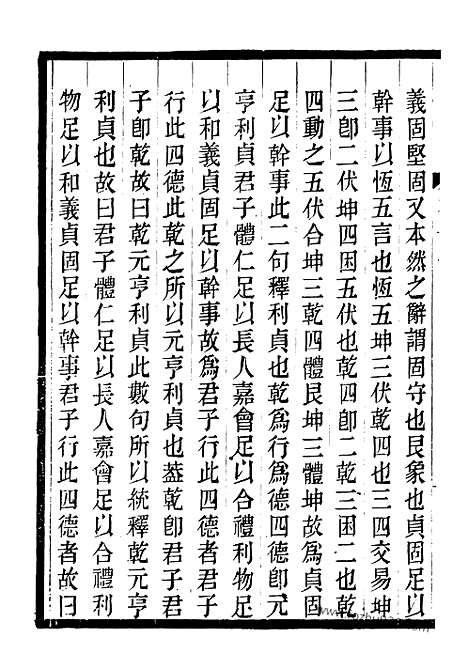 義固堅固又本然之辭謂固守也艮象也貞固足以
幹事以恆五言也恆五坤三伏乾四也三四交易坤
三卽二伏坤四困五伏也乾四卽二乾三困二也乾
四動之五伏合坤三乾四體艮坤三體坤故爲貞固
足以幹事此二句釋利貞也乾爲行爲德四德卽元
亨利貞君子體仁足以長人嘉會足以合禮利物足
以和義貞固足以幹事故爲君子行此四德者故爲君子
行此四德此乾之所以元亨利貞也蓋乾卽君子君
子卽乾故曰乾元亨利貞此數句所以統釋乾元亨
利貞也故曰君子體仁足以長人嘉會足以合禮利
物足以和義貞固足以幹事君子行此四德者故曰